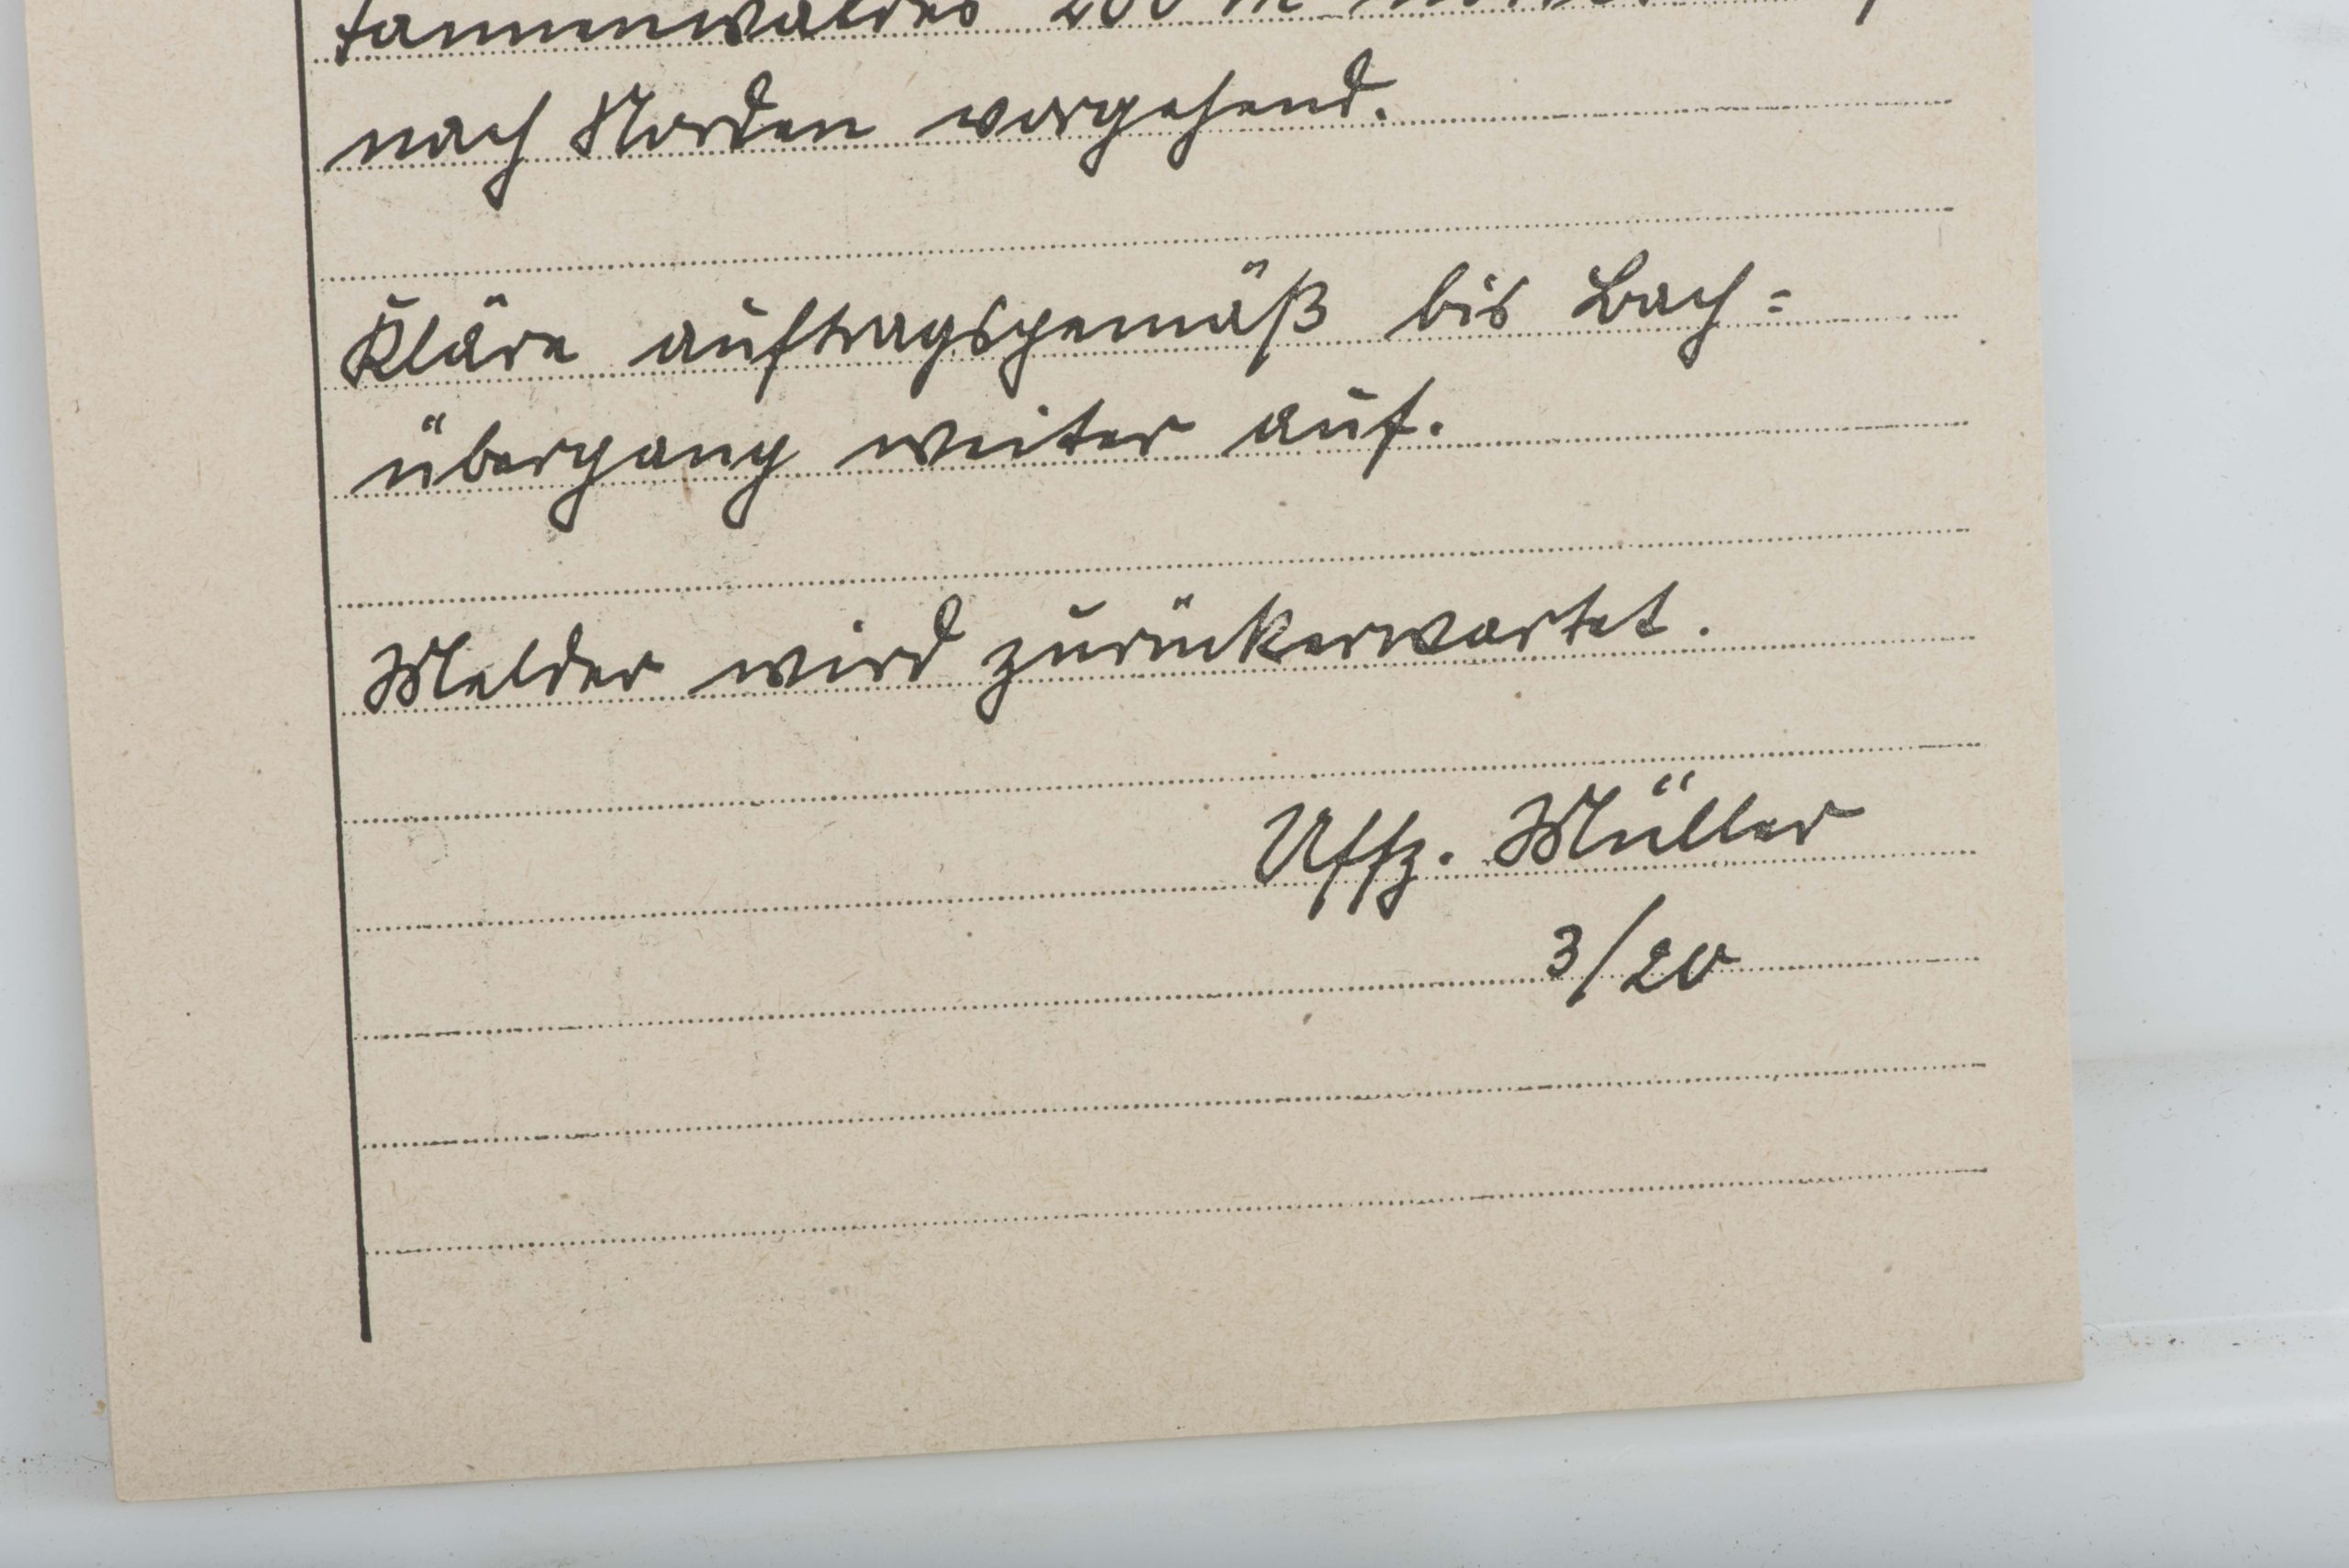 tannenwaldes 200 m
nach Norden vorgehend.
Kläre auftragsgemäß bis Bach=
übergang weiter auf.
Melder wird zurückerwartet.
Uffz. Müller
3/20